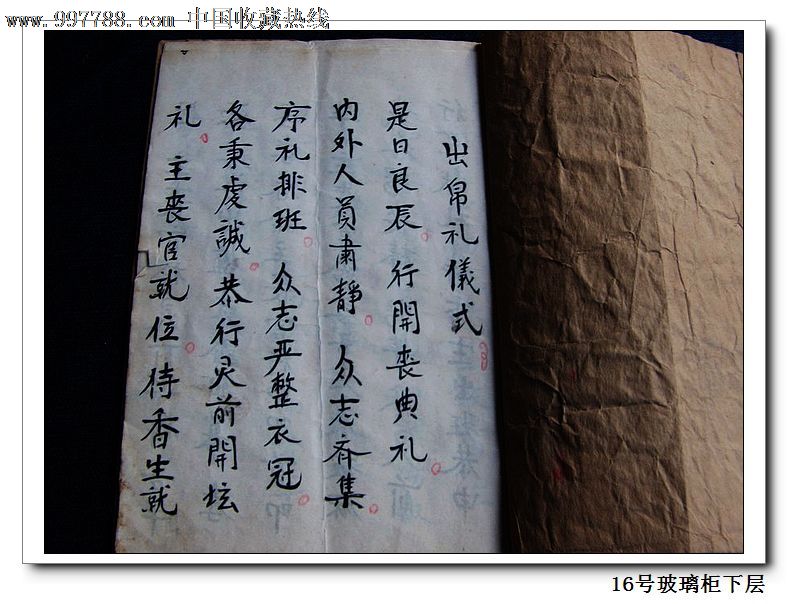 www.997788.com 中国收藏热线
出帛礼儀式
是日良辰 行開喪典礼
内外人員肅靜 众志齐集
序礼排班 众志严整衣冠
各秉虔誠 恭行灵前開坛
礼 主喪官就位 待香生就
16号玻璃柜下层